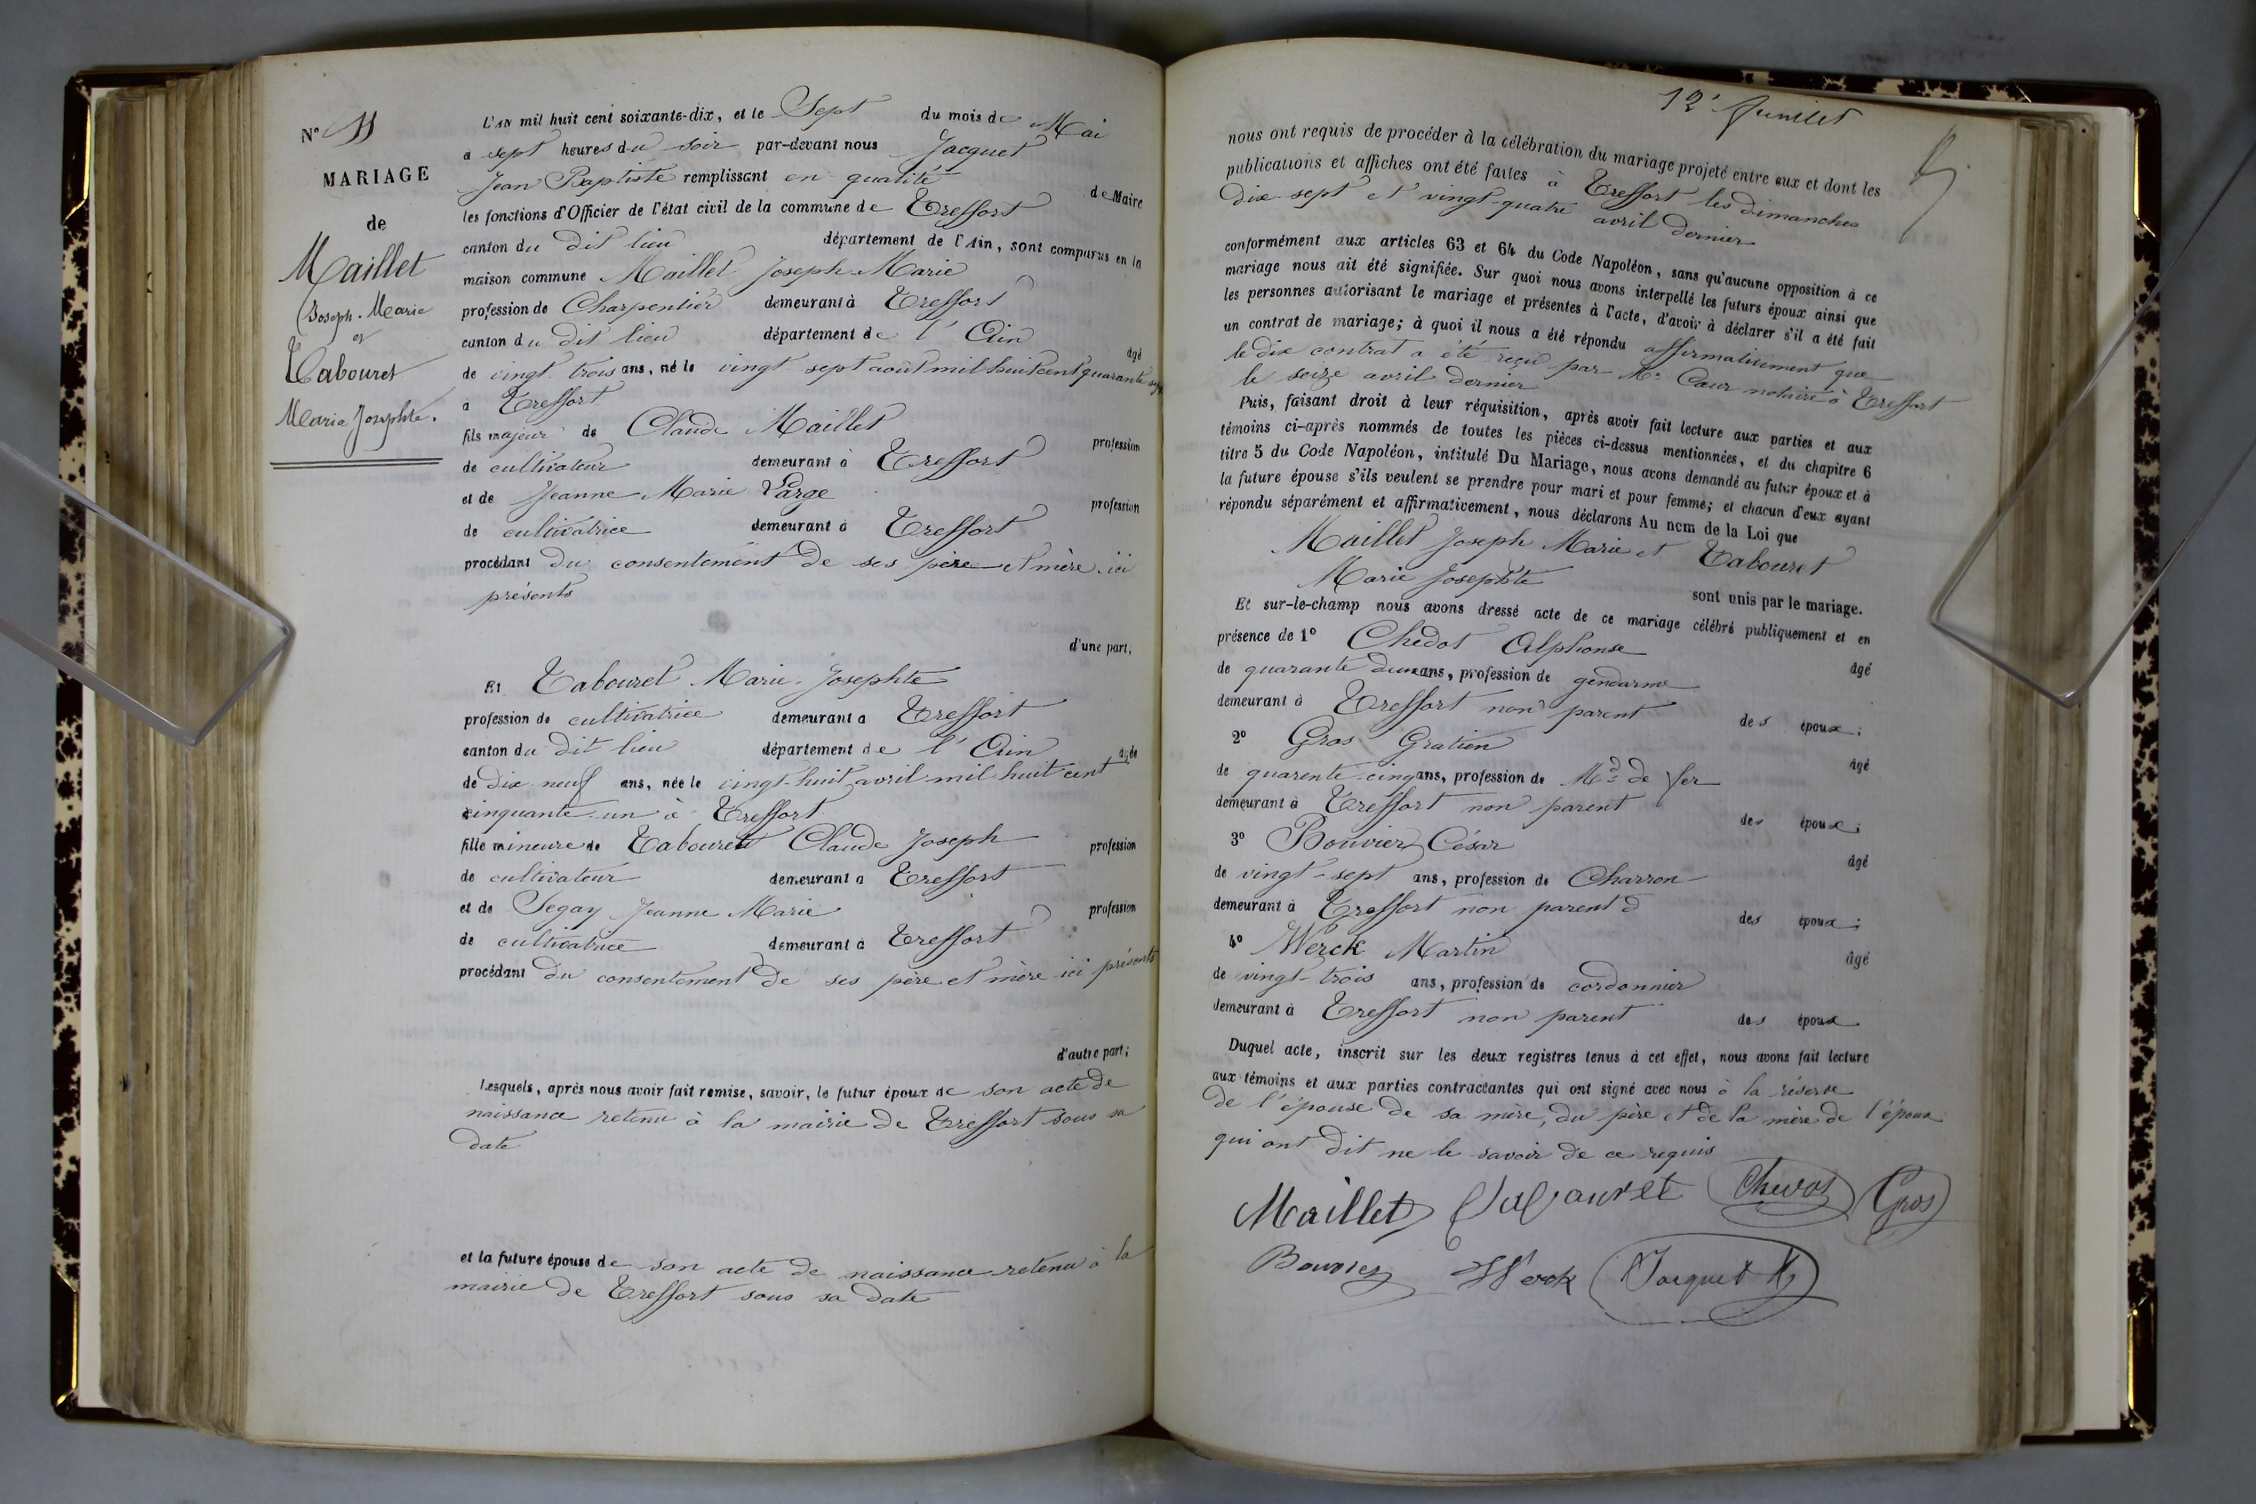 N° 11
MARIAGE
de
Maillet
Joseph. Marie
et
Tabouret
Marie Josephte.
L'AN mil huit cent soixante-dix, et le Sept du mois de Mai
à sept heures du soir par-devant nous Jacquet
Jean Baptiste remplissant en qualité de Maire
les fonctions d'Officier de l'état civil de la commune de Treffort
canton du dit lieu département de l'Ain, sont comparus en la
maison commune Maillet Joseph Marie
profession de Charpentier demeurant à Treffort
canton du dit lieu département de l'Ain âgé
de vingt trois ans, né le vingt sept août mil huit cent quarante six
à Treffort
fils majeur de Claude Maillet profession
de cultivateur demeurant à Treffort
et de Jeanne Marie Large profession
de cultivatrice demeurant à Treffort
procédant du consentement de ses père et mère ici
présents
d'une part,
Et Tabouret Marie Josephte
profession de cultivatrice demeurant à Treffort
canton du dit lieu département de l'Ain âgée
de dix neuf ans, née le vingt-huit avril mil huit cent
cinquante un à Treffort
fille mineure de Tabouret Claude Joseph profession
de cultivateur demeurant à Treffort
et de Segay Jeanne Marie profession
de cultivatrice demeurant à Treffort
procédant du consentement de ses père et mère ici présents
d'autre part;
Lesquels, après nous avoir fait remise, savoir, le futur époux de son acte de
naissance retenu à la mairie de Treffort sous sa
date
et la future épouse de son acte de naissance retenu à la
mairie de Treffort sous sa date
12e feuillet
nous ont requis de procéder à la célébration du mariage projeté entre eux et dont les
publications et affiches ont été faites à Treffort les dimanches
dix sept et vingt-quatre avril dernier
conformément aux articles 63 et 64 du Code Napoléon, sans qu'aucune opposition à ce
mariage nous ait été signifiée. Sur quoi nous avons interpellé les futurs époux ainsi que
les personnes autorisant le mariage et présentes à l'acte, d'avoir à déclarer s'il a été fait
un contrat de mariage; à quoi il nous a été répondu affirmativement que
le dix contrat a été reçu par Me Caur notaire à Treffort
le seize avril dernier
Puis, faisant droit à leur réquisition, après avoir fait lecture aux parties et aux
témoins ci-après nommés de toutes les pièces ci-dessus mentionnées, et du chapitre 6
titre 5 du Code Napoléon, intitulé Du Mariage, nous avons demandé au futur époux et à
la future épouse s'ils veulent se prendre pour mari et pour femme; et chacun d'eux ayant
répondu séparément et affirmativement, nous déclarons Au nom de la Loi que
Maillet Joseph Marie et Tabouret
Marie Josephte
sont unis par le mariage.
Et sur-le-champ nous avons dressé acte de ce mariage célébré publiquement et en
présence de 1° Chedot Alphonse âgé
de quarante deux ans, profession de gendarme
demeurant à Treffort non parent des époux;
2° Gros Gratien âgé
de quarente-cinq ans, profession de Md de fer
demeurant à Treffort non parent des époux;
3° Bouvier César âgé
de vingt-sept ans, profession de Charron
demeurant à Treffort non parent d des époux;
4° Werck Martin âgé
de vingt-trois ans, profession de cordonnier
demeurant à Treffort non parent des époux
Duquel acte, inscrit sur les deux registres tenus à cet effet, nous avons fait lecture
aux témoins et aux parties contractantes qui ont signé avec nous à la réserve
de l'épouse de sa mère, du père et de la mère de l'époux
qui ont dit ne le savoir de ce requis
Maillet Tabouret Chedot Gros
Bouvier Werck Jacquet